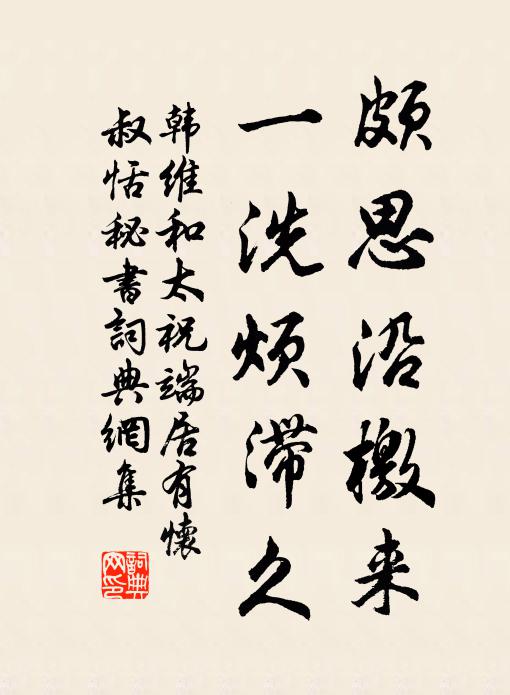 颇思沿檄来
一洗烦滞久
韩维和太祝端居有懷
叔恬秘書詞典網集
詞典网印